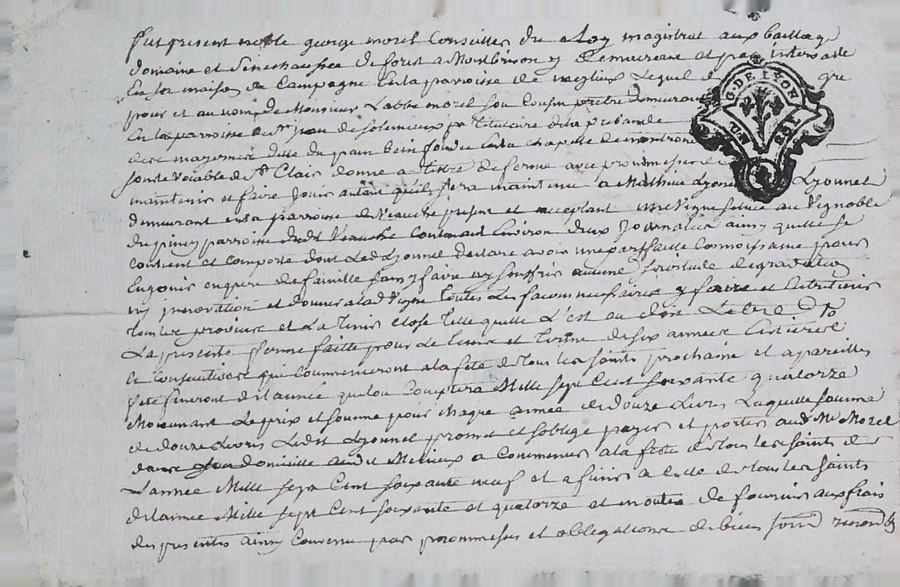 fut present noble george morel Conseiller du Roy magistrat aux bailliage
domaine et Senechaussée de forest a Montbrison y demeurant et par intervalle
En sa maison de Campagne En la parroisse de Lequel de gré
G. DE LYON
pour et au nom de Monsieur L'abbé morel son Cousin prêtre demeurant
En la parroisse de St jean de Solemieux Titulaire d'une prebande
du pain benin fondée En la chapelle de
sous le vocable de St Clair donne a titre de ferme avec promesse de
maintenir et faire Jouir autant qu'il sera maintenu a Mathieu Lyonnet
demeurant en la parroisse de Veauche present et acceptant une Vigne Scituée au Vignoble
du piney parroisse dudt Veauche Contenant Environ deux Journalier ainsy quelle se
Contient et Comporte dont Led Lyonnet Declare avoir une parfaitte Connoissance pour
En jouir en pere de famille sans y faire ny souffrir aucune servitude degradation
ny innovation et donner a lad Vigne toutes Les façons necessaires y faire et Entretenir
tous Les provins et La tenir close telle quelle L'est au
La presente ferme faitte pour Le tems et terme de six années Entieres
et Consecutives qui Commenceront a la fete de tous Les saints prochaine et a pareilles
fete finiront de l'année que l'on Comptera Mille sept Cent soixante quatorze
Moiennant Le prix et somme pour chaque année de douze Livres Laquelle somme
de douze Livres Ledit Lyonnet promet et s'oblige payer et porter aud Mr Morel
dans son domicille audit Merieux a Commencer a la fete de tous Les saints de
L'année Mille sept Cent soixante neuf et a finir a Celle de tous Les saints
de l'année Mille sept Cent soixante et quatorze et en outre de fournir aux frais
des presentes ainsy Convenu par promesses et obligations de biens